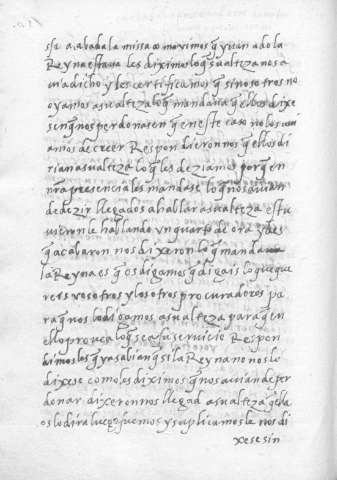 ssi acabada la missa como vimos q̃ yvan a do la
Reyna estava les diximos lo q̃ su alteza nos a
via dicho y les certificamos q̃ si nosotros no
oyamos a su alteza lo q̃ mandava q̃ ellos dixe
sen q̃ nos perdonasen q̃ en este caso no los avi
amos de creer Respondieron nos q̃ ellos di
rian a su alteza lo q̃ les deziamos porq̃ en
nr̃a presencia les mandase lo q̃ nos avian
de dezir llegados a hablar a su alteza estu
vieron le hablando vn quarto de ora y des
q̃ acabaron nos dixeron lo q̃ manda
la Reyna es q̃ os digamos q̃ digais lo que que
reis vosotros y los otros procuradores pa
ra q̃ nos lo digamos a su alteza para q̃ en
ello provea lo q̃ sea su servicio Respon
dimosles q̃ ya sabian q̃ si la Reyna no nos lo
dixese como les diximos q̃ nos avian de per
donar dixeron nos llegad a su alteza q̃ ella
os lo dira luego fuemos y suplicamosle nos di
xese sin